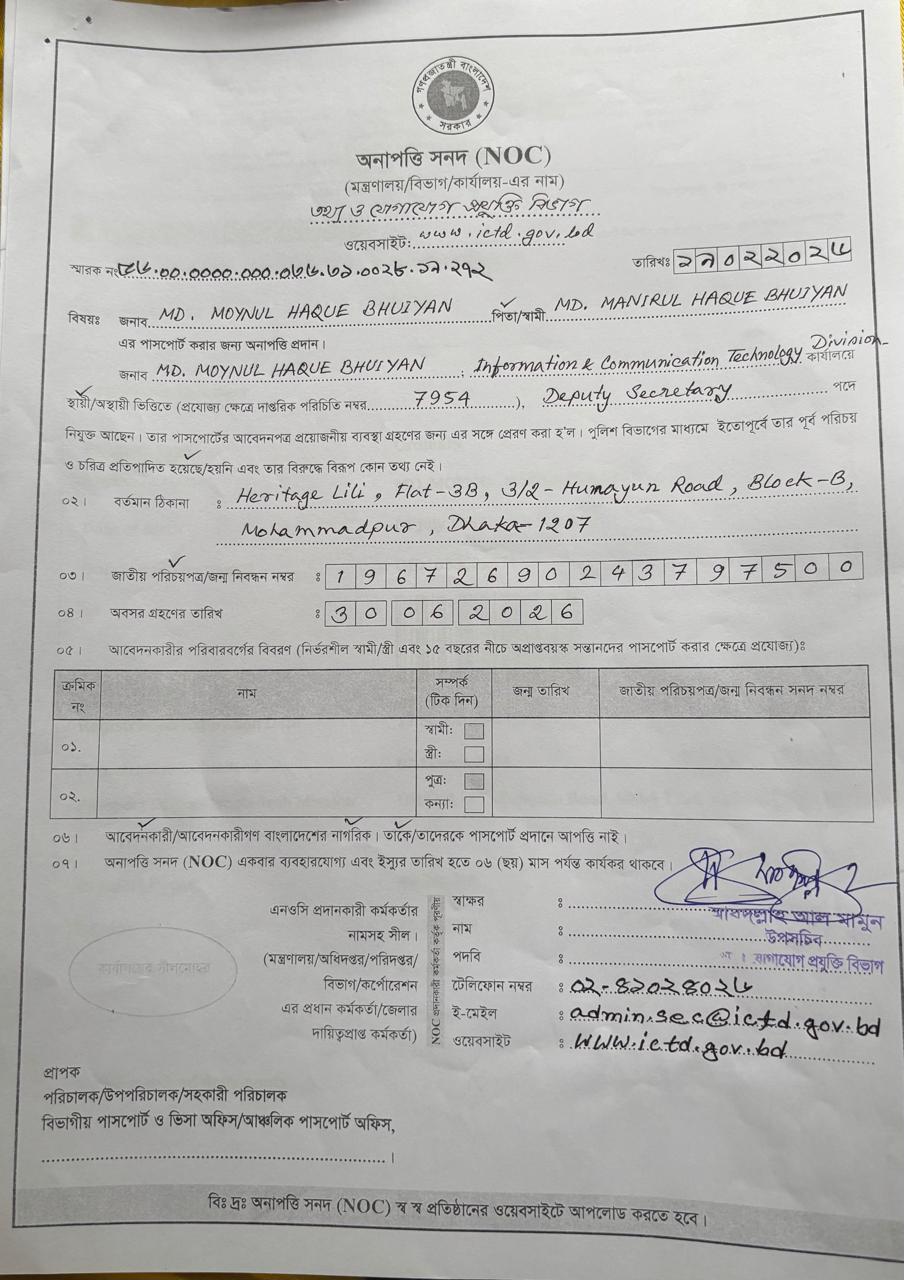 গণপ্রজাতন্ত্রী বাংলাদেশ
সরকার
অনাপত্তি সনদ (NOC)
(মন্ত্রণালয়/বিভাগ/কার্যালয়-এর নাম)
তথ্য ও যোগাযোগ প্রযুক্তি বিভাগ
ওয়েবসাইট: www.ictd.gov.bd
স্মারক নং ৫৬.০০.০০০০.০০০.০৬৬.৩১.০০২৮.১৯.২১২ তারিখঃ
বিষয়ঃ জনাব MD. MOYNUL HAQUE BHUIYAN পিতা/স্বামী MD. MANIRUL HAQUE BHUIYAN
এর পাসপোর্ট করার জন্য অনাপত্তি প্রদান।
জনাব MD. MOYNUL HAQUE BHUIYAN, Information & Communication Technology Division কার্যালয়ে
স্থায়ী/অস্থায়ী ভিত্তিতে (প্রযোজ্য ক্ষেত্রে দাপ্তরিক পরিচিতি নম্বর 7954), Deputy Secretary পদে
নিযুক্ত আছেন। তার পাসপোর্টের আবেদনপত্র প্রয়োজনীয় ব্যবস্থা গ্রহণের জন্য এর সঙ্গে প্রেরণ করা হ'ল। পুলিশ বিভাগের মাধ্যমে ইতোপূর্বে তার পূর্ব পরিচয়
ও চরিত্র প্রতিপাদিত হয়েছে/হয়নি এবং তার বিরুদ্ধে বিরূপ কোন তথ্য নেই।
০২। বর্তমান ঠিকানা : Heritage Lili, Flat-3B, 3/2-Humayun Road, Block-B,
Mohammadpur, Dhaka-1207
০৩। জাতীয় পরিচয়পত্র/জন্ম নিবন্ধন নম্বর : 19672690243797500
০৪। অবসর গ্রহণের তারিখ : 30 06 2026
০৫। আবেদনকারীর পরিবারবর্গের বিবরণ (নির্ভরশীল স্বামী/স্ত্রী এবং ১৫ বছরের নীচে অপ্রাপ্তবয়স্ক সন্তানদের পাসপোর্ট করার ক্ষেত্রে প্রযোজ্য)ঃ
ক্রমিক নং নাম সম্পর্ক (টিক দিন) জন্ম তারিখ জাতীয় পরিচয়পত্র/জন্ম নিবন্ধন সনদ নম্বর
০১. স্বামী:
স্ত্রী:
০২. পুত্র:
কন্যা:
০৬। আবেদনকারী/আবেদনকারীগণ বাংলাদেশের নাগরিক। তাকে/তাদেরকে পাসপোর্ট প্রদানে আপত্তি নাই।
০৭। অনাপত্তি সনদ (NOC) একবার ব্যবহারযোগ্য এবং ইস্যুর তারিখ হতে ০৬ (ছয়) মাস পর্যন্ত কার্যকর থাকবে।
এনওসি প্রদানকারী কর্মকর্তার
নামসহ সীল।
(মন্ত্রণালয়/অধিদপ্তর/পরিদপ্তর/
বিভাগ/কর্পোরেশন
এর প্রধান কর্মকর্তা/জেলার
দায়িত্বপ্রাপ্ত কর্মকর্তা)
কার্যালয়ের সীলমোহর
NOC প্রদানকারী কর্মকর্তা কর্তৃক পূরণীয়
স্বাক্ষর :
নাম : আবদুল্লাহ আল মামুন
পদবি : উপসচিব
যোগাযোগ প্রযুক্তি বিভাগ
টেলিফোন নম্বর :
ই-মেইল : admin.sec@ictd.gov.bd
ওয়েবসাইট : www.ictd.gov.bd
প্রাপক
পরিচালক/উপপরিচালক/সহকারী পরিচালক
বিভাগীয় পাসপোর্ট ও ভিসা অফিস/আঞ্চলিক পাসপোর্ট অফিস,
বিঃ দ্রঃ অনাপত্তি সনদ (NOC) স্ব স্ব প্রতিষ্ঠানের ওয়েবসাইটে আপলোড করতে হবে।